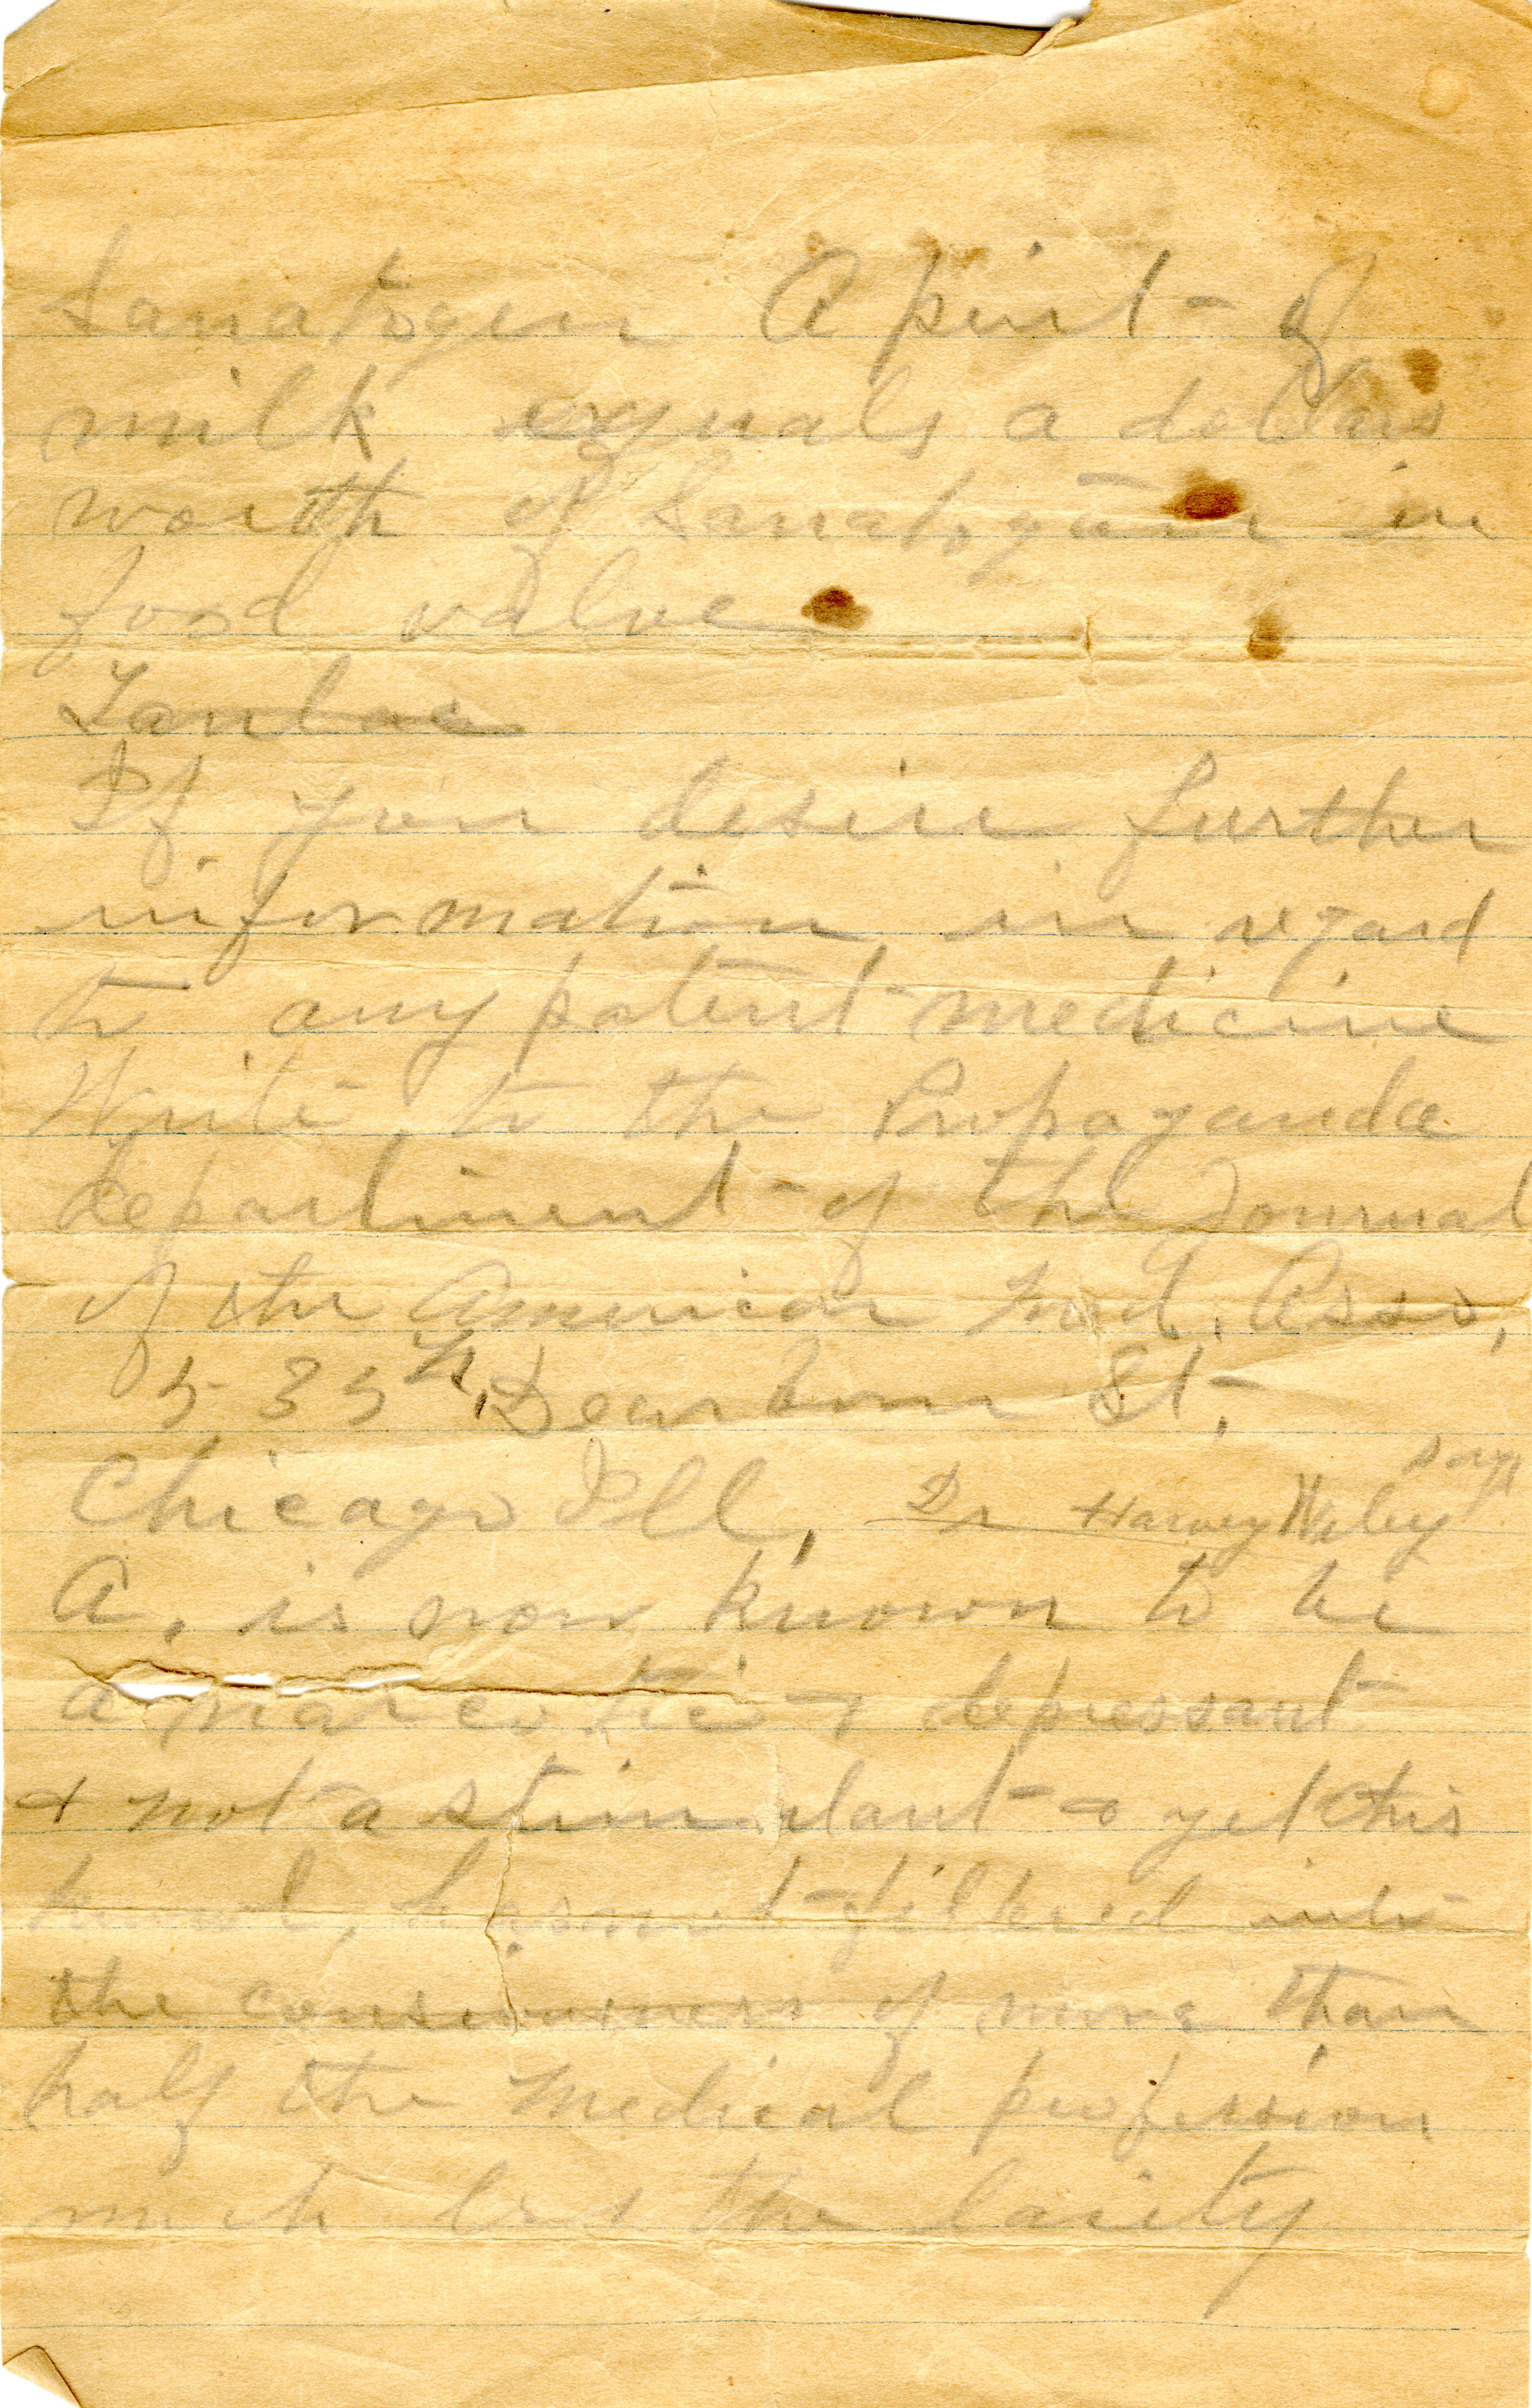 Sanatogen A pint of
milk equals a dollars
worth of Sanatogen in
food value
Tanlac
If you desire further
information in regard
to any patent medicine
Write to the Propaganda
department of the Journal
of the American Med. Asso,
535 N. Dearborn St.
Chicago Ill, Dr Harvey Wiley says
A. is now known to be
a narcotic + depressant
+ not a stimulant + yet this
has not filtered into
the consciousness of more than
half the Medical profession
much less the laity